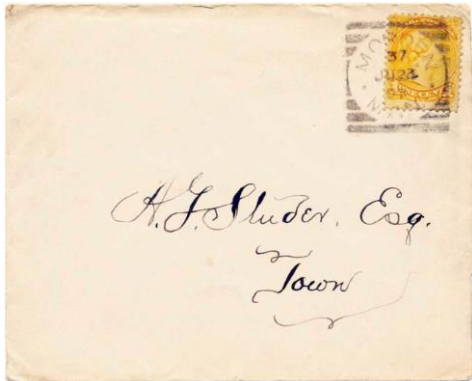 MORDEN
37
MAN
A. F. Studer, Esq.
Town